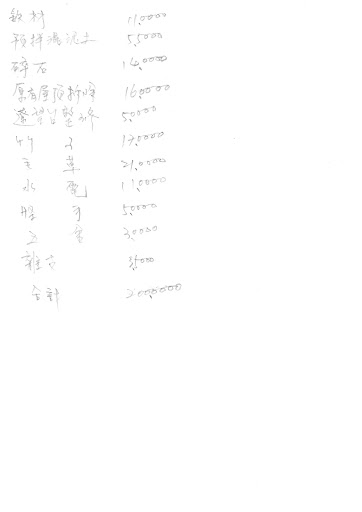 鉄材 11,0000
預拌混泥土 5,5000
碎石 14,0000
原有屋頂拆除 16,0000
5,0000
竹子 17,0000
毛草 21,0000
水電 11,0000
5,0000
3,0000
雜支 3,5000
合計 200,0000